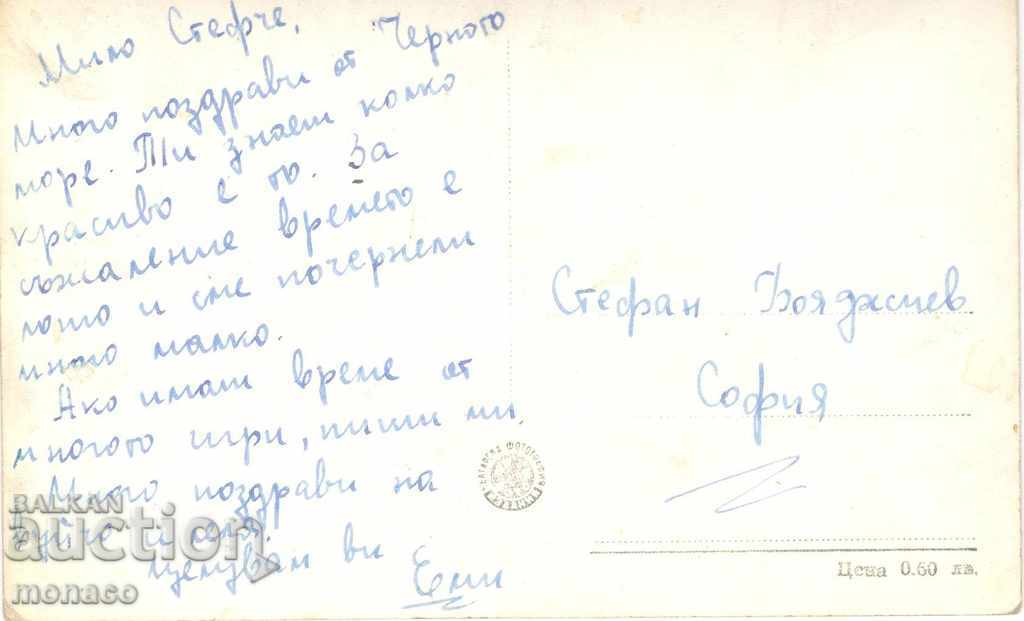 Мило Стефче,
Много поздрави от Черното
море. Ти знаеш колко
красиво е то. За
съжаление времето е
лошо и сме почернели
много малко.
Ако имаш време от
многото игри, пиши ми.
Много поздрави на
вуйчо и леля.
Целувам ви
Ени
Стефан Бояджиев
София
Цена 0.60 лв.
BALKAN
auction
monaco